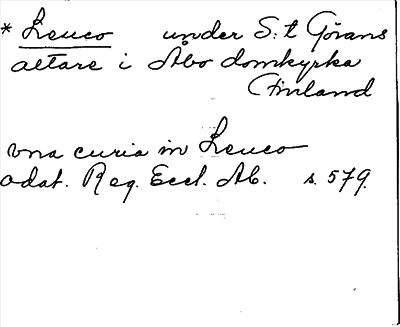 * Leuco under S:t Görans
altare i Åbo domkyrka
(Finland
vna curia in Leuco
odat. Reg. Eccl. Ab. s. 579.